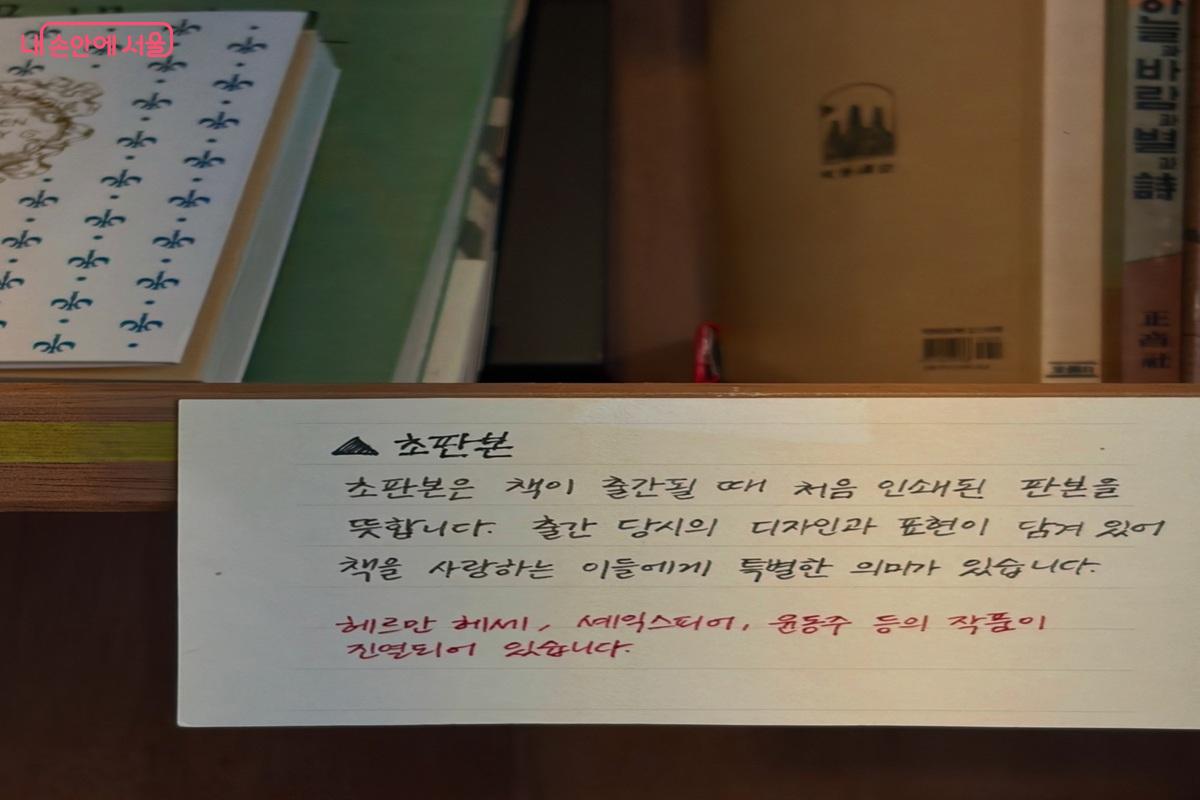 내 손안에 서울
하늘과 바람과 별과 詩
正音社
▲ 초판본
초판본은 책이 출간될 때 처음 인쇄된 판본을
뜻합니다. 출간 당시의 디자인과 표현이 담겨 있어
책을 사랑하는 이들에게 특별한 의미가 있습니다.
헤르만 헤세, 셰익스피어, 윤동주 등의 작품이
진열되어 있습니다.